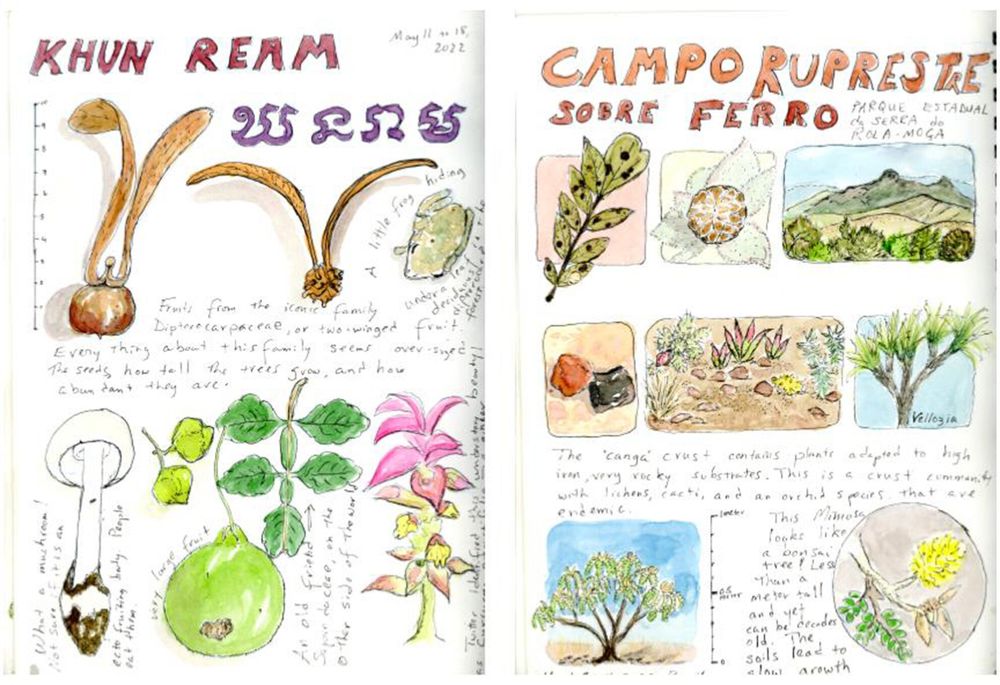 KHUN REAM
May 11 to 18,
2022
ឃុនរាម
A little frog hiding
under a
deciduous
Fruits from the iconic family
Dipterocarpaceae, or two-winged fruit.
Everything about this family seems over-sized.
The seeds, how tall the trees grow, and how
abundant they are.
What a mushroom!
Not sure if it is an
ecto fruiting body. People
eat them.
very large fruit
An old friend
on the
other side of the world
CAMPO RUPRESTRE
SOBRE FERRO
PARQUE ESTADUAL
da SERRA do
ROLA-MOGA
Vellozia
The 'canga' crust contains plants adapted to high
iron, very rocky substrates. This is a crust community
with lichens, cacti, and an orchid species that are
endemic.
1 meter
0.5
meter
0
This Mimosa
looks like
a bonsai
tree! Less
than a
meter tall
and yet
can be decades
old. The
soils lead to
slow growth